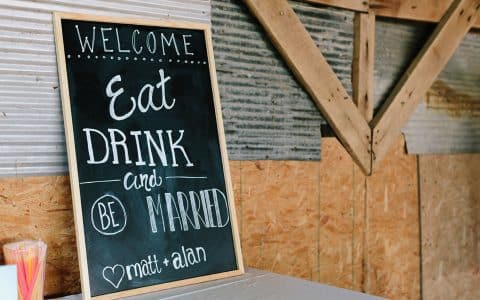 WELCOME
Eat
DRINK
and
BE MARRIED
♡matt + alan